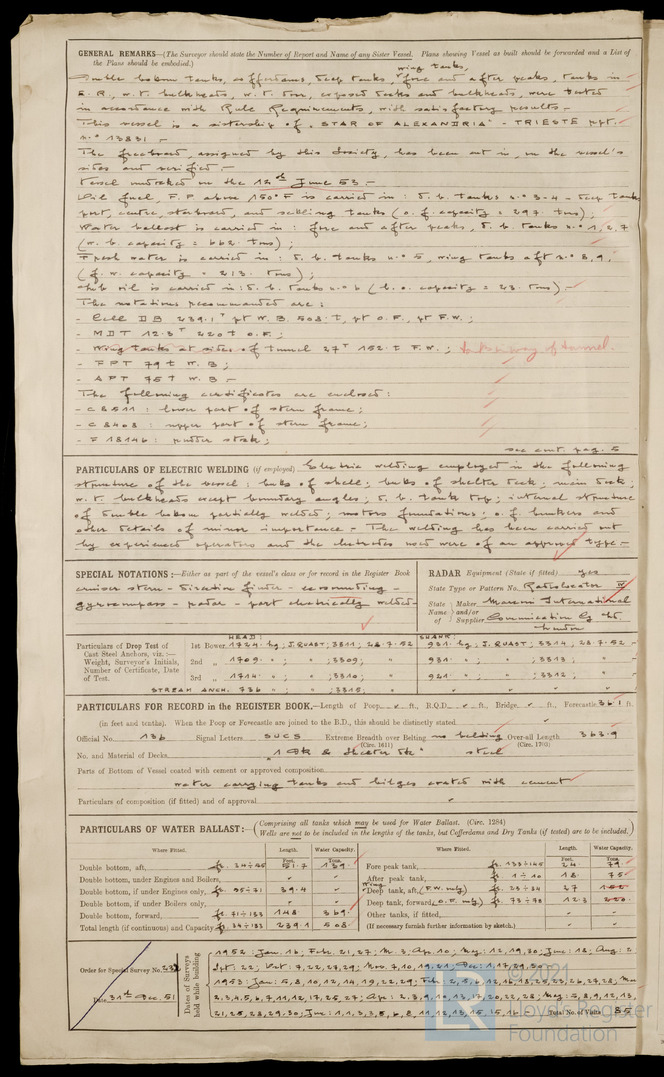 GENERAL REMARKS—(The Surveyor should state the Number of Report and Name of any Sister Vessel. Plans showing Vessel as built should be forwarded and a List of
the Plans should be embodied.)
wing tanks,
Double bottom tanks, cofferdams, deep tanks, fore and after peaks, tanks in
E.R., w.t. bulkheads, w.t. door, exposed decks and bulkheads, were tested
in accordance with Rule Requirements, with satisfactory results -
This vessel is a sistership of "STAR OF ALEXANDRIA" - TRIESTE rpt.
n.° 13831 -
The freeboard, assigned by this Society, has been cut in, on the vessel's
sides and verified -
Vessel undocked on the 12th June 53 -
Oil fuel, F.P. above 150°F is carried in : d.b. tanks n.° 3-4 - deep tanks
port, centre, starboard, and settling tanks (o.f. capacity = 297 tons);
Water ballast is carried in : fore and after peaks, d.b. tanks n.° 1,2,7
(w.b. capacity = 662 tons);
Fresh water is carried in : d.b. tanks n° 5, wing tanks aft n.° 8,9;
(f.w. capacity = 213 tons);
Lub oil is carried in : d.b. tanks n.° 6 (l.o. capacity = 23 tons) -
The notations recommended are :
- Cell DB 239.1' pt W.B. 508 t, pt O.F., pt F.W.;
- MDT 12.3' 220 t O.F.;
- Wing tanks at sides of tunnel 27' 152 t F.W.; tanks in way of tunnel.
- FPT 79 t W.B;
- APT 75 t W.B -
The following certificates are enclosed :
- C 8511 : lower part of stern frame;
- C 8408 : upper part of stern frame;
- F 18146 : rudder stock;
see cont. pag. 5
PARTICULARS OF ELECTRIC WELDING (if employed) Electric welding employed in the following
structure of the vessel : butts of shell; butts of shelter deck; main deck;
w.t. bulkheads except boundary angles; d.b. tank top; internal structure
of double bottom partially welded; motors foundations; o.f. bunkers and
other details of minor importance - The welding has been carried out
by experienced operators and the electrodes used were of an approved type -
SPECIAL NOTATIONS :—Either as part of the vessel's class or for record in the Register Book
cruiser stern - direction finder - echosounding -
gyrocompass - radar - part electrically welded -
RADAR Equipment (State if fitted) yes
State Type or Pattern No. Radiolocator IV
State Name of Maker and/or Supplier Marconi International
Communication Co. Ltd.
London
HEAD: SHANK:
Particulars of Drop Test of
Cast Steel Anchors, viz. :—
Weight, Surveyor's Initials,
Number of Certificate, Date
of Test.
1st Bower 1724 kg; J.QUAST; 3311; 28.7.52 931 kg; J.QUAST; 3314; 28.7.52 -
2nd „ 1709 " ; " ; 3309; " 931 " ; " ; 3313; " -
3rd „ 1714 " ; " ; 3310; " 921 " ; " ; 3312; " -
STREAM ANCH. 736 " ; " ; 3315; "
PARTICULARS FOR RECORD in the REGISTER BOOK.—Length of Poop ft., R.Q.D. ft., Bridge ft., Forecastle 36.1 ft.
(in feet and tenths). When the Poop or Forecastle are joined to the B.D., this should be distinctly stated
Official No. 136 Signal Letters SUCS Extreme Breadth over Belting no belting Over-all Length 363.9
(Circ. 1611) (Circ. 1703)
No. and Material of Decks 1 Dk & Shelter Dk steel
Parts of Bottom of Vessel coated with cement or approved composition
water carrying tanks and bilges coated with cement
Particulars of composition (if fitted) and of approval
PARTICULARS OF WATER BALLAST:— (Comprising all tanks which may be used for Water Ballast. (Circ. 1284)
Wells are not to be included in the lengths of the tanks, but Cofferdams and Dry Tanks (if tested) are to be included.)
Where Fitted. Length. Water Capacity. Where Fitted. Length. Water Capacity.
Feet. Tons. Feet. Tons.
Double bottom, aft, fr. 34÷35 51.7 139
Double bottom, under Engines and Boilers, "
Double bottom, if under Engines only, fr. 55÷71 39.4 "
Double bottom, if under Boilers only, "
Double bottom, forward, fr. 71÷133 148 369
Total length (if continuous) and Capacity fr. 34÷133 239.1 508
Fore peak tank, fr. 133÷145 24 79
After peak tank, fr. 1÷10 18 75
Wing
Deep tank, aft, (F.W. only) fr. 23÷34 27 152
Deep tank, forward, (O.F. only) fr. 73÷78 12.3 220
Other tanks, if fitted,
(If necessary furnish further information by sketch.)
Order for Special Survey No. 232
Date 31st Dec. 51
Dates of Surveys held while building
1952 : Jan. 16; Febr. 21, 27; M. 3; Apr. 10; May : 12, 19, 30; June : 18; Aug : 2
Spt. 22; Oct : 7, 22, 27, 29; Nov. 7, 10, 19, 21; Dec : 1, 17, 29, 30
1953 : Jan : 5, 8, 10, 12, 14, 19, 22, 29;
Total No. of Visits 85
© 2021
Lloyd's Register
Foundation
LR